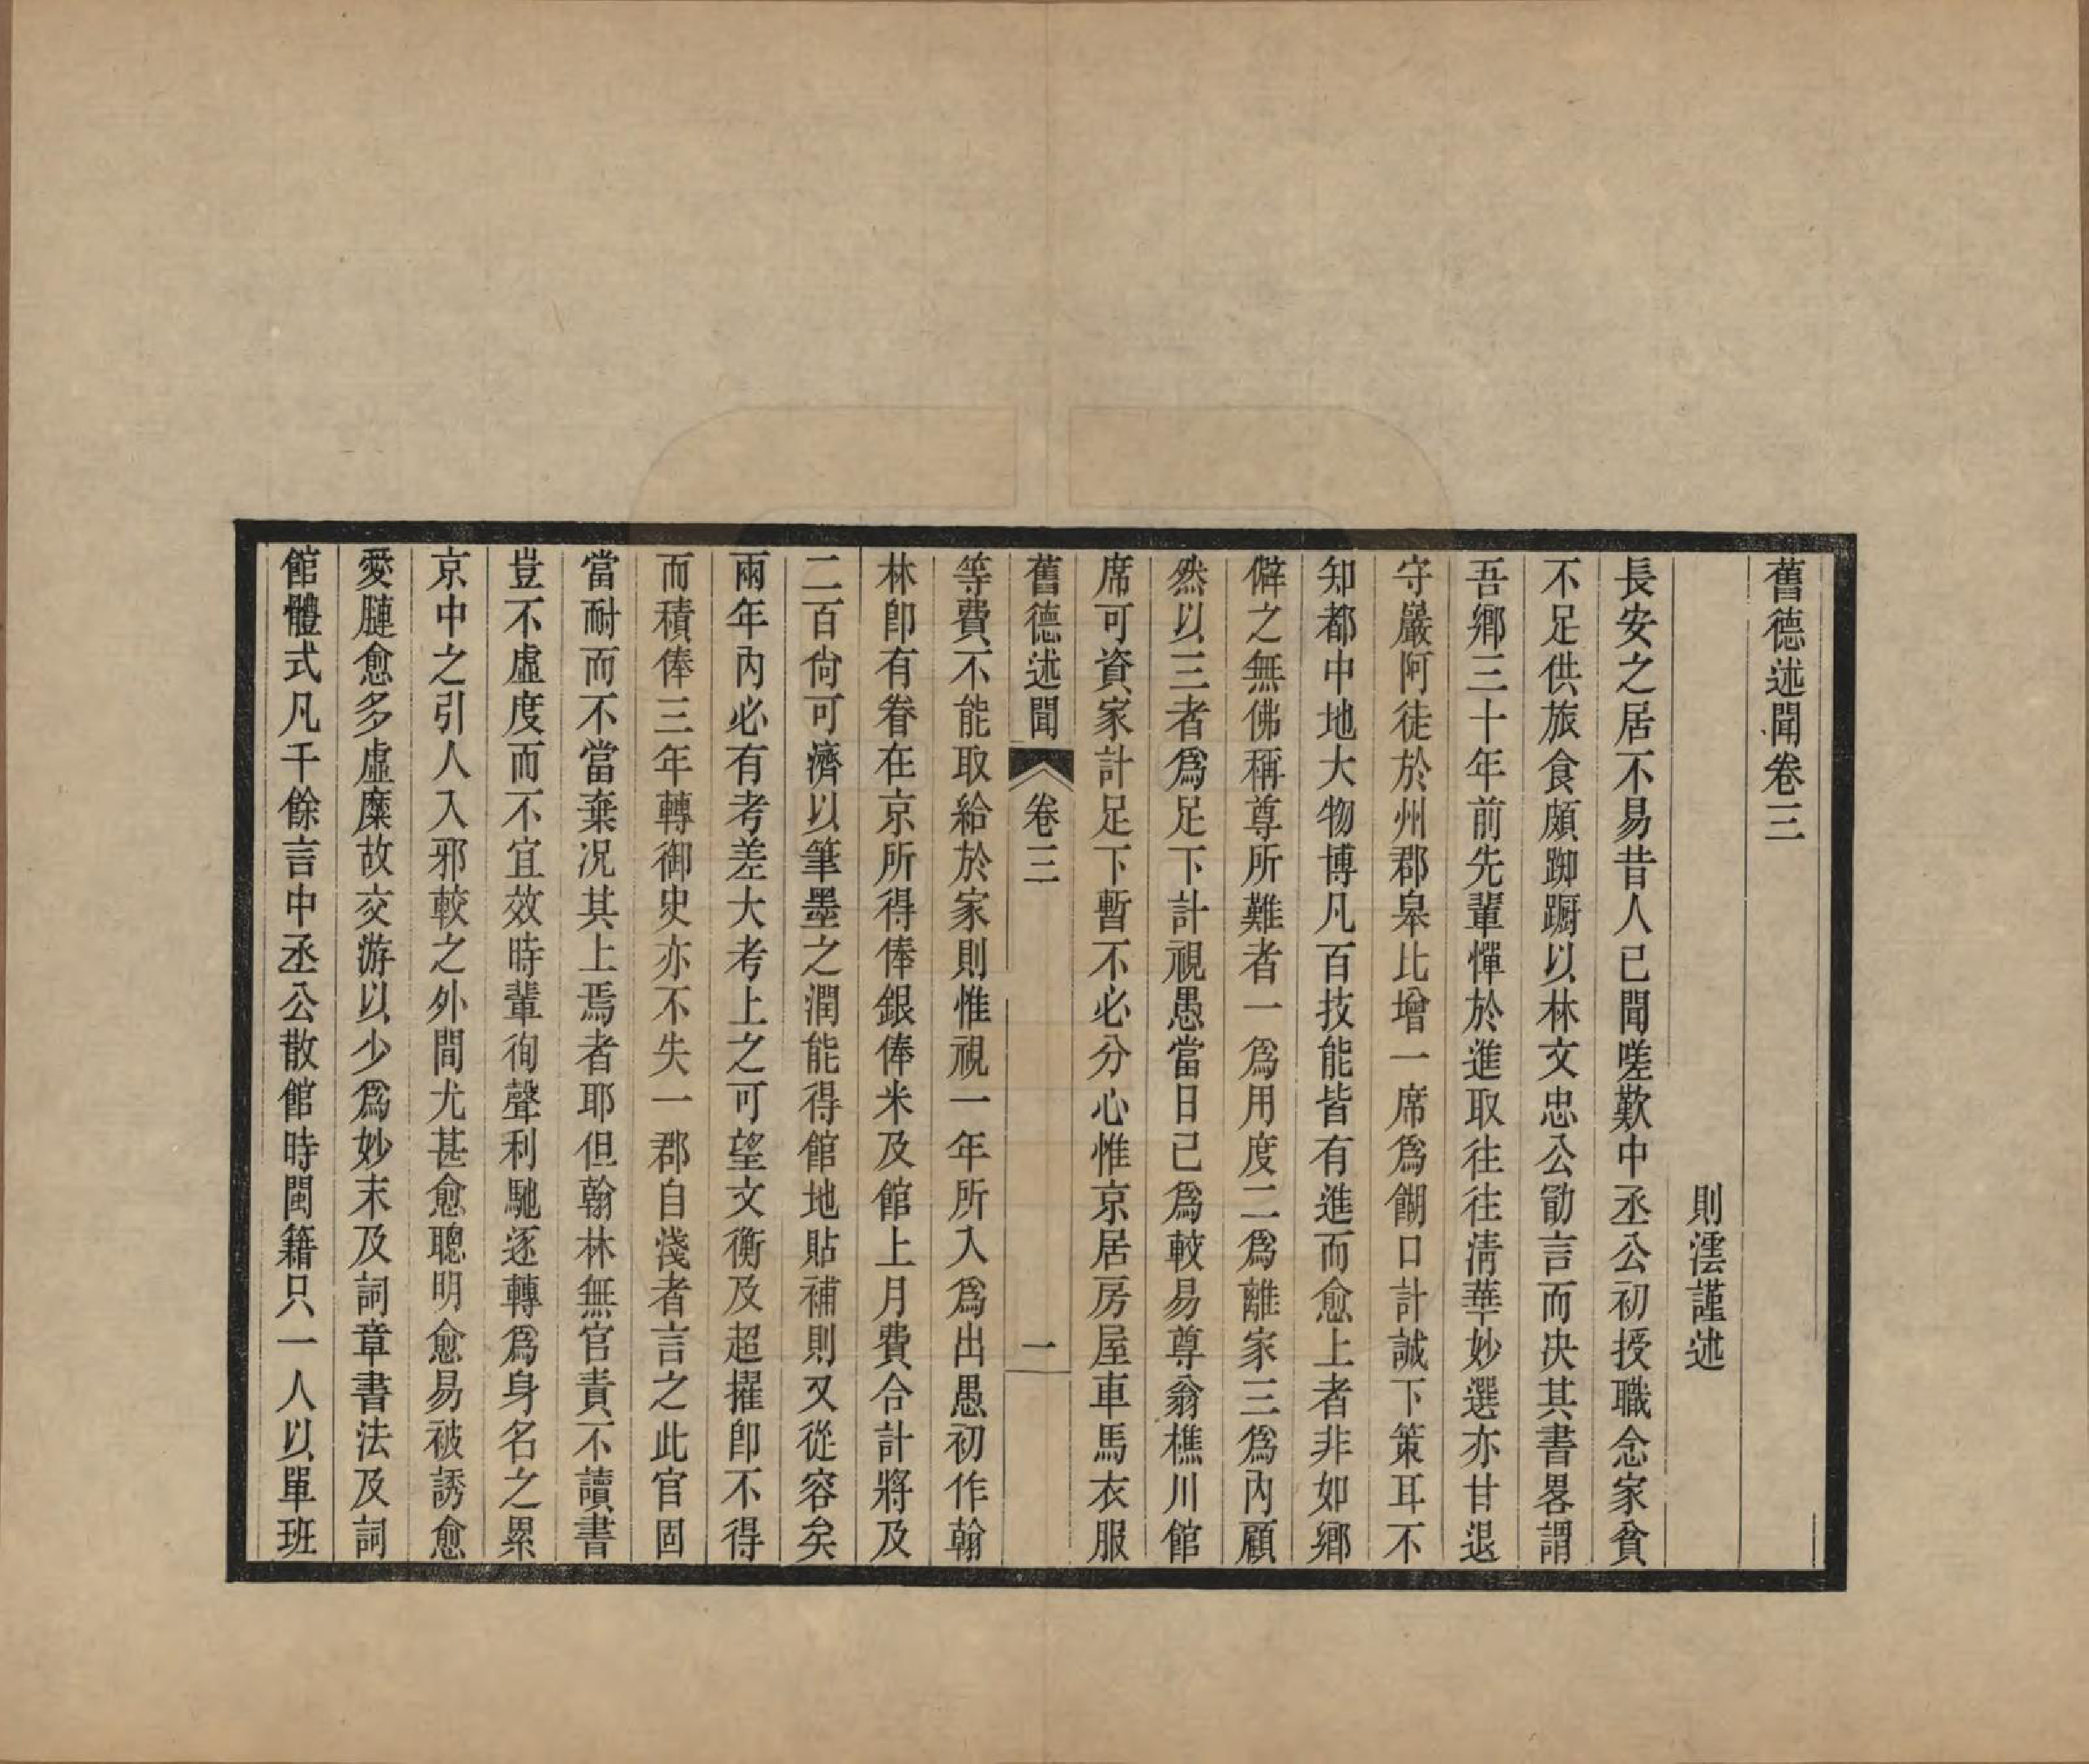 舊德述聞卷三
則澐謹述
長安之居不易昔人已聞嗟歎中丞公初授職念家貧
不足供旅食頗踟躕以林文忠公勖言而决其書畧謂
吾鄉三十年前先輩憚於進取往往淸華妙選亦甘退
守嚴阿徒於州郡皋比增一席爲餬口計誠下策耳不
知都中地大物博凡百技能皆有進而愈上者非如鄉
僻之無佛稱尊所難者一爲用度二爲離家三爲內顧
然以三者爲足下計視愚當日已爲較易尊翁樵川館
席可資家計足下暫不必分心惟京居房屋車馬衣服
舊德述聞
卷三
一
等費不能取給於家則惟視一年所入爲出愚初作翰
林卽有眷在京所得俸銀俸米及館上月費合計將及
二百尙可濟以筆墨之潤能得館地貼補則又從容矣
兩年內必有考差大考上之可望文衡及超擢卽不得
而積俸三年轉御史亦不失一郡自淺者言之此官固
當耐而不當棄况其上焉者耶但翰林無官責不讀書
豈不虛度而不宜效時輩徇聲利馳逐轉爲身名之累
京中之引人入邪較之外間尤甚愈聰明愈易被誘愈
愛膢愈多虛糜故交游以少爲妙末及詞章書法及詞
館體式凡千餘言中丞公散館時閩籍只一人以單班